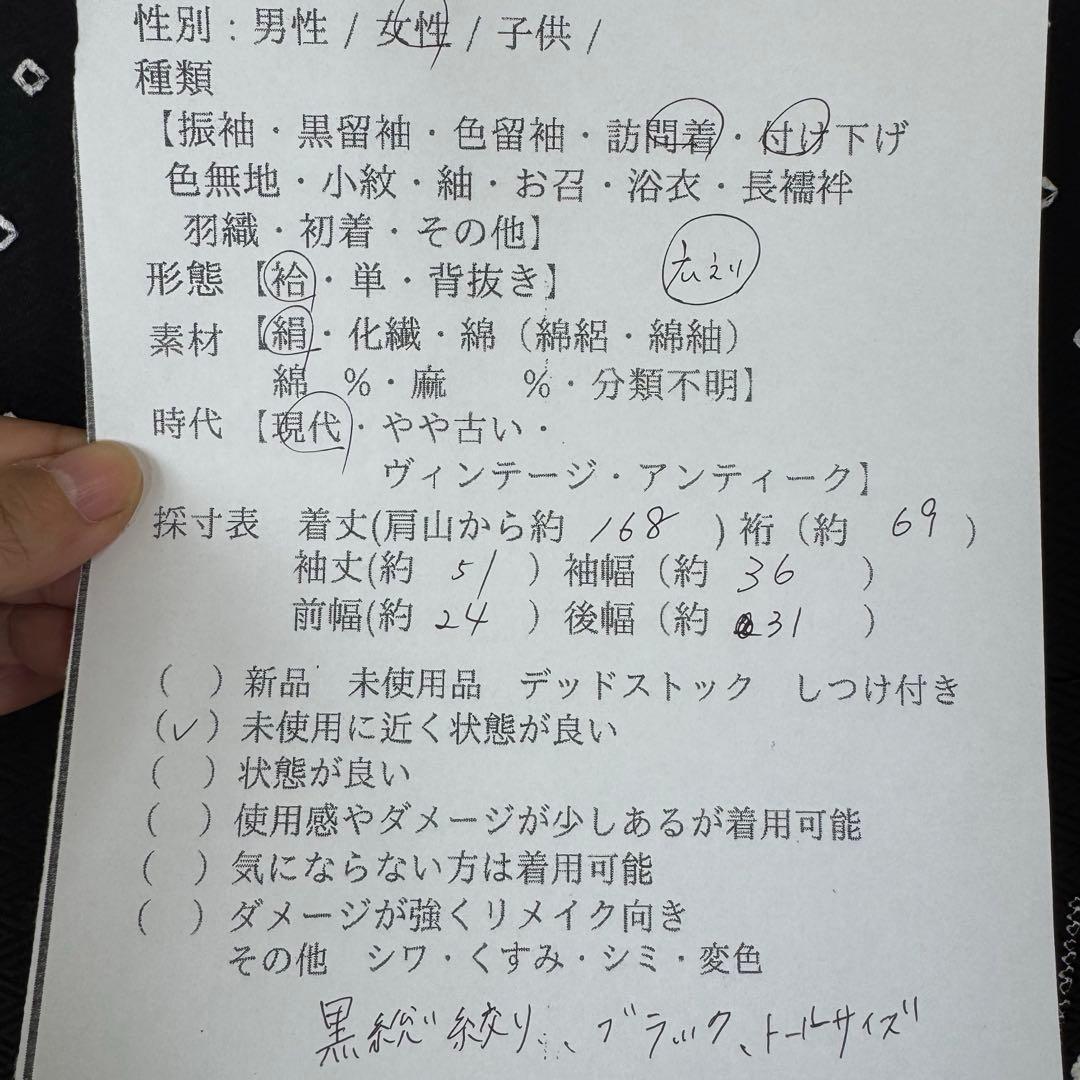 性別：男性 / 女性 / 子供 /
種類
【振袖・黒留袖・色留袖・訪問着・付け下げ
色無地・小紋・紬・お召・浴衣・長襦袢
羽織・初着・その他】
広えり
形態【袷・単・背抜き】
素材【絹・化繊・綿（綿絽・綿紬）
綿　％・麻　　％・分類不明】
時代【現代・やや古い・
ヴィンテージ・アンティーク】
採寸表　着丈(肩山から約 168 ) 裄（約 69 ）
袖丈(約 51 ）袖幅（約 36 ）
前幅(約 24 ）後幅（約 31 ）
（　）新品　未使用品　デッドストック　しつけ付き
（✓）未使用に近く状態が良い
（　）状態が良い
（　）使用感やダメージが少しあるが着用可能
（　）気にならない方は着用可能
（　）ダメージが強くリメイク向き
その他　シワ・くすみ・シミ・変色
黒総絞り、ブラック、トールサイズ